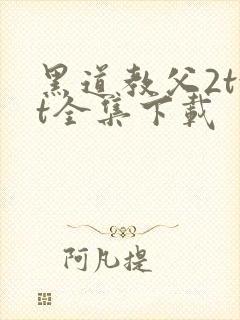 黑道教父2tx
t全集下载
阿凡提